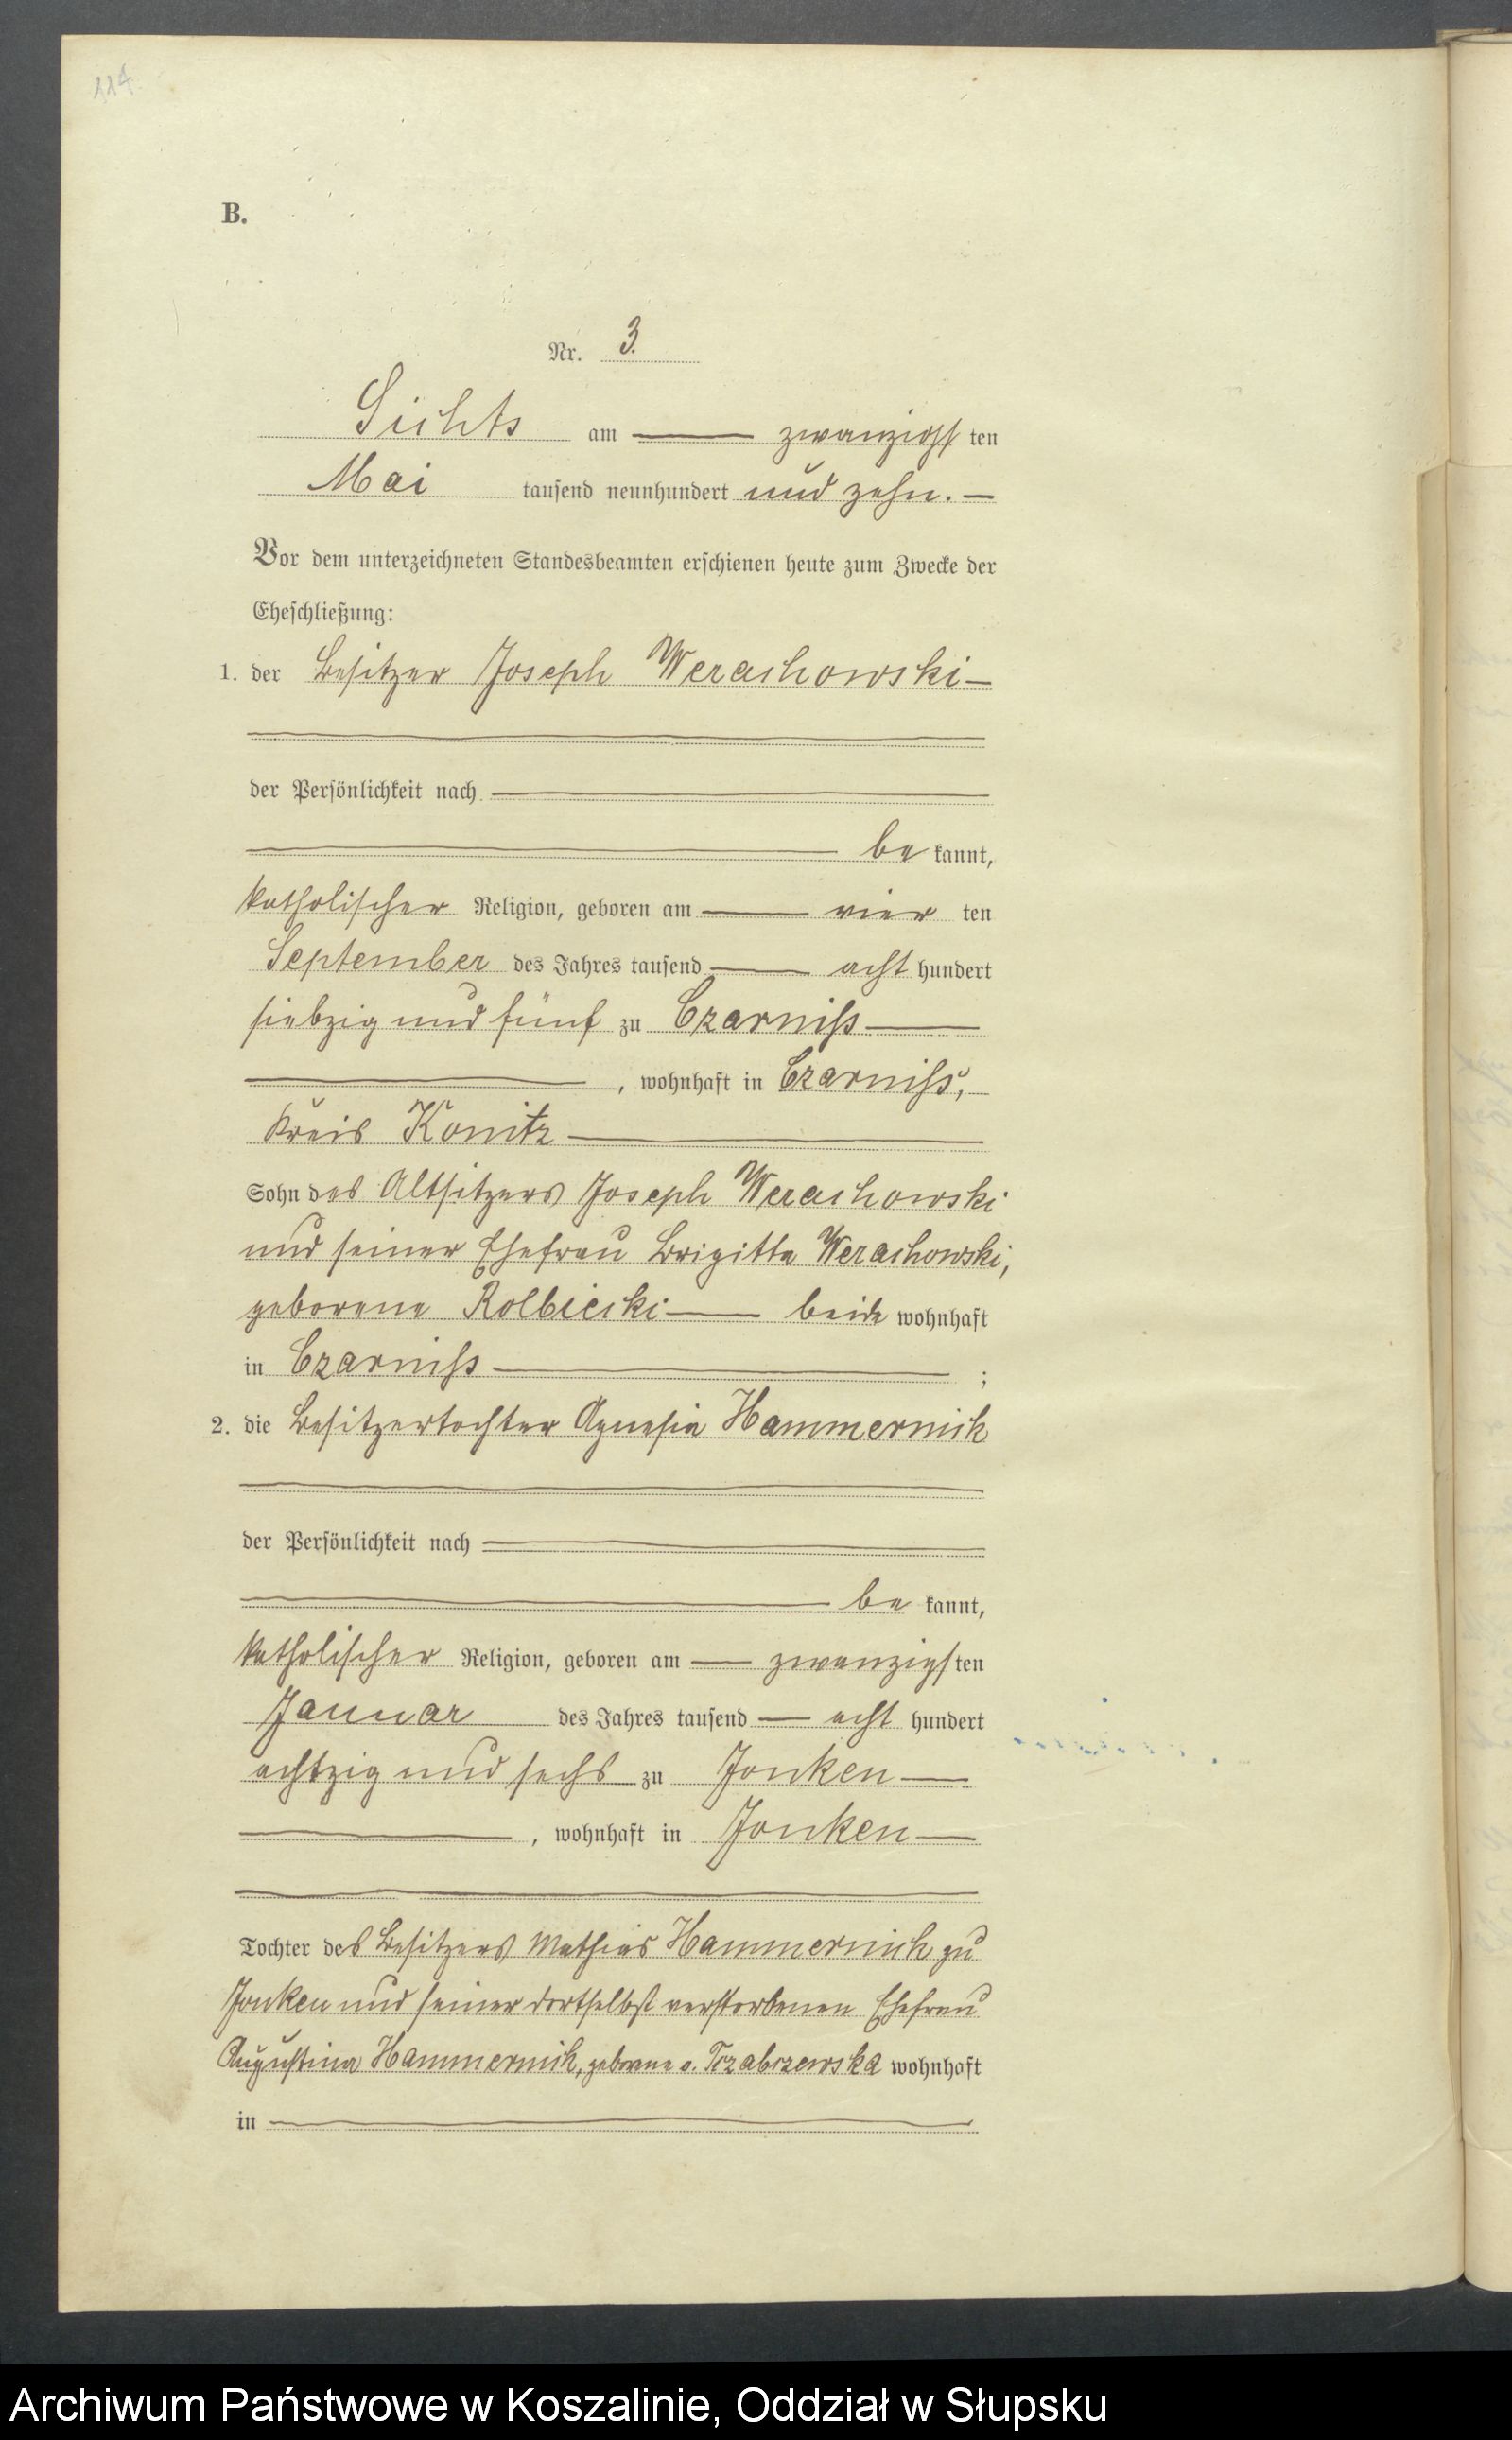 114.
B.
Nr. 3.
Sichts am zwanzigsten
Mai tausend neunhundert und zehn. —
Vor dem unterzeichneten Standesbeamten erschienen heute zum Zwecke der
Eheschließung:
1. der Besitzer Joseph Werachowski —
der Persönlichkeit nach
be kannt,
katholischer Religion, geboren am — vier ten
September des Jahres tausend — acht hundert
siebzig und fünf zu Czarniss —
, wohnhaft in Czarniss,
Kreis Konitz —
Sohn des Altsitzers Joseph Werachowski
und seiner Ehefrau Brigitta Werachowski,
geborene Rolbiecki — beide wohnhaft
in Czarniss — ;
2. die Besitzertochter Agnesia Hammermik
der Persönlichkeit nach
be kannt,
katholischer Religion, geboren am — zwanzigsten
Januar des Jahres tausend — acht hundert
achtzig und sechs zu Jonken —
, wohnhaft in Jonken —
Tochter des Besitzers Mathias Hammermik zu
Jonken und seiner dortselbst verstorbenen Ehefrau
Augustina Hammermik, geborene v. Trzabczewska wohnhaft
in —
Archiwum Państwowe w Koszalinie, Oddział w Słupsku